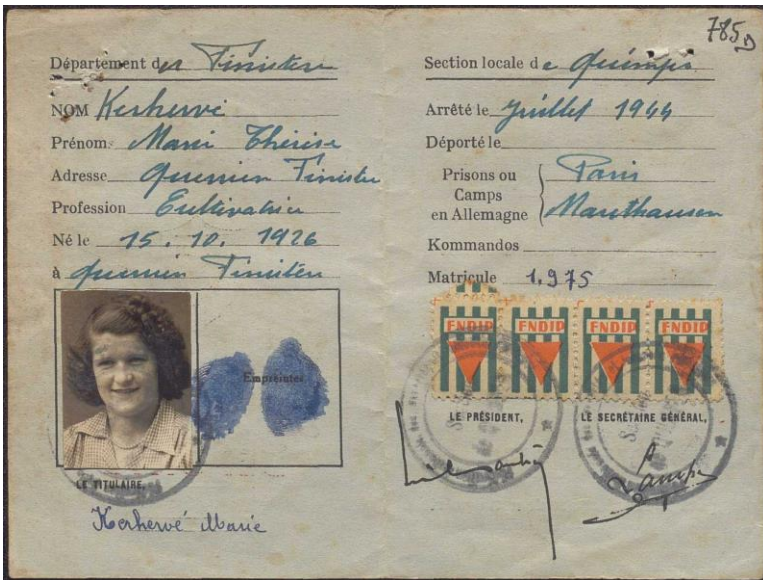 785 D
Département de Finistère
NOM Kerhervé
Prénom Marie Thérèse
Adresse Finistère
Profession Cultivatrice
Né le 15.10.1926
à Finistère
Empreintes
LE TITULAIRE,
Kerhervé Marie
Section locale de Quimper
Arrêté le Juillet 1944
Déporté le
Prisons ou Paris
Camps
en Allemagne Mauthausen
Kommandos
Matricule 1.975
FNDIP FNDIP FNDIP FNDIP
LE PRÉSIDENT, LE SECRÉTAIRE GÉNÉRAL,